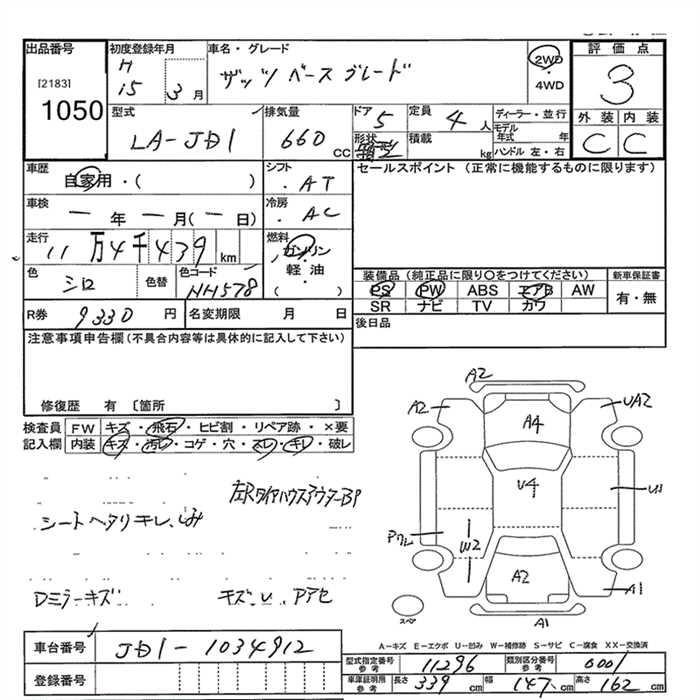 出品番号
[2183]
1050
初度登録年月
H
15 3 月
車名・グレード
ザッツ ベースグレード
2WD
・
4WD
評価点
3
外装 内装
C C
型式
LA-JD1
排気量
660
CC
ドア
5
定員
4 人
形状
箱型
積載
kg
ディーラー・並行
モデル年式 年
ハンドル 左・右
車歴
自家用・( )
シフト
・AT
車検
一 年 一 月(一 日)
冷房
・AC
走行
11 万 4 千 439 km
燃料
ガソリン
・
軽油
( ・ )
色
シロ
色替
色コード
NH578
R券
9330 円
名変期限 月 日
セールスポイント(正常に機能するものに限ります)
装備品(純正品に限り○をつけてください)
PS PW ABS エアB AW
SR ナビ TV カワ
新車保証書
有・無
後日品
注意事項申告欄(不具合内容等は具体的に記入して下さい)
修復歴 有 〔箇所 〕
検査員
記入欄
FW キズ・飛石・ヒビ割・リペア跡・×要
内装 キズ・汚レ・コゲ・穴・スレ・キレ・破レ
左Rタイヤハウスアウターヨゴレ
シートヘタリキレ、しみ
Dミラーキズ
キズ、U、アアセ
A2
A2
UA2
A4
U4
U1
W2
A2
A1
A1
スペア
A-キズ E-エクボ U-凹み W-補修跡 S-サビ C-腐食 XX-交換済
車台番号
JD1-1034912
登録番号
型式指定番号
参考
11296
類別区分番号
参考
0001
車庫証明用
参考
長さ 339 cm
幅 147 cm
高さ 162 cm